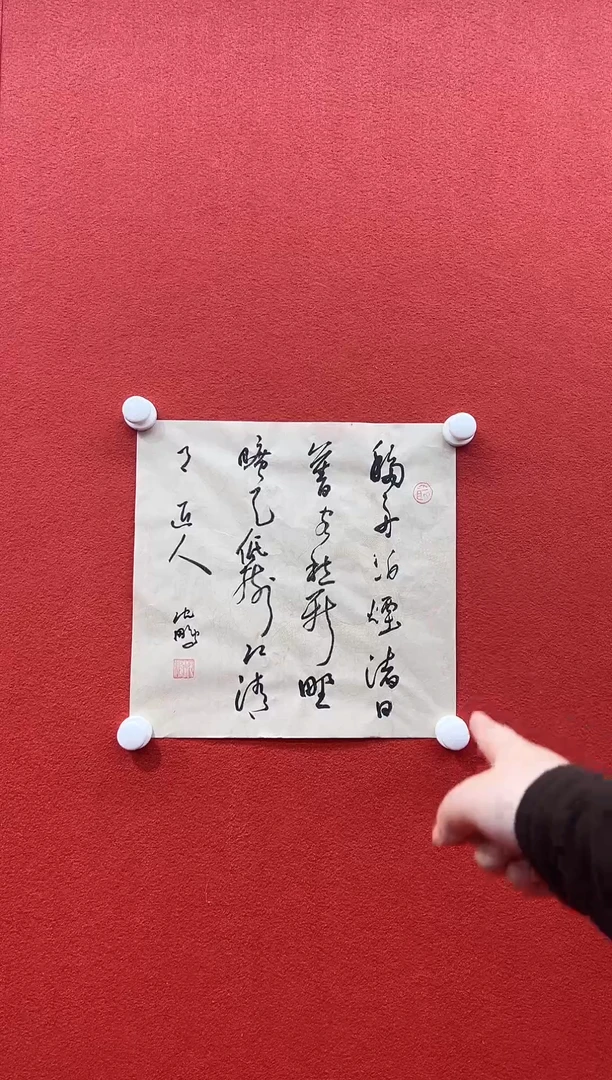 移舟泊煙渚日
暮客愁新野
曠天低樹江清
月近人
沈鵬